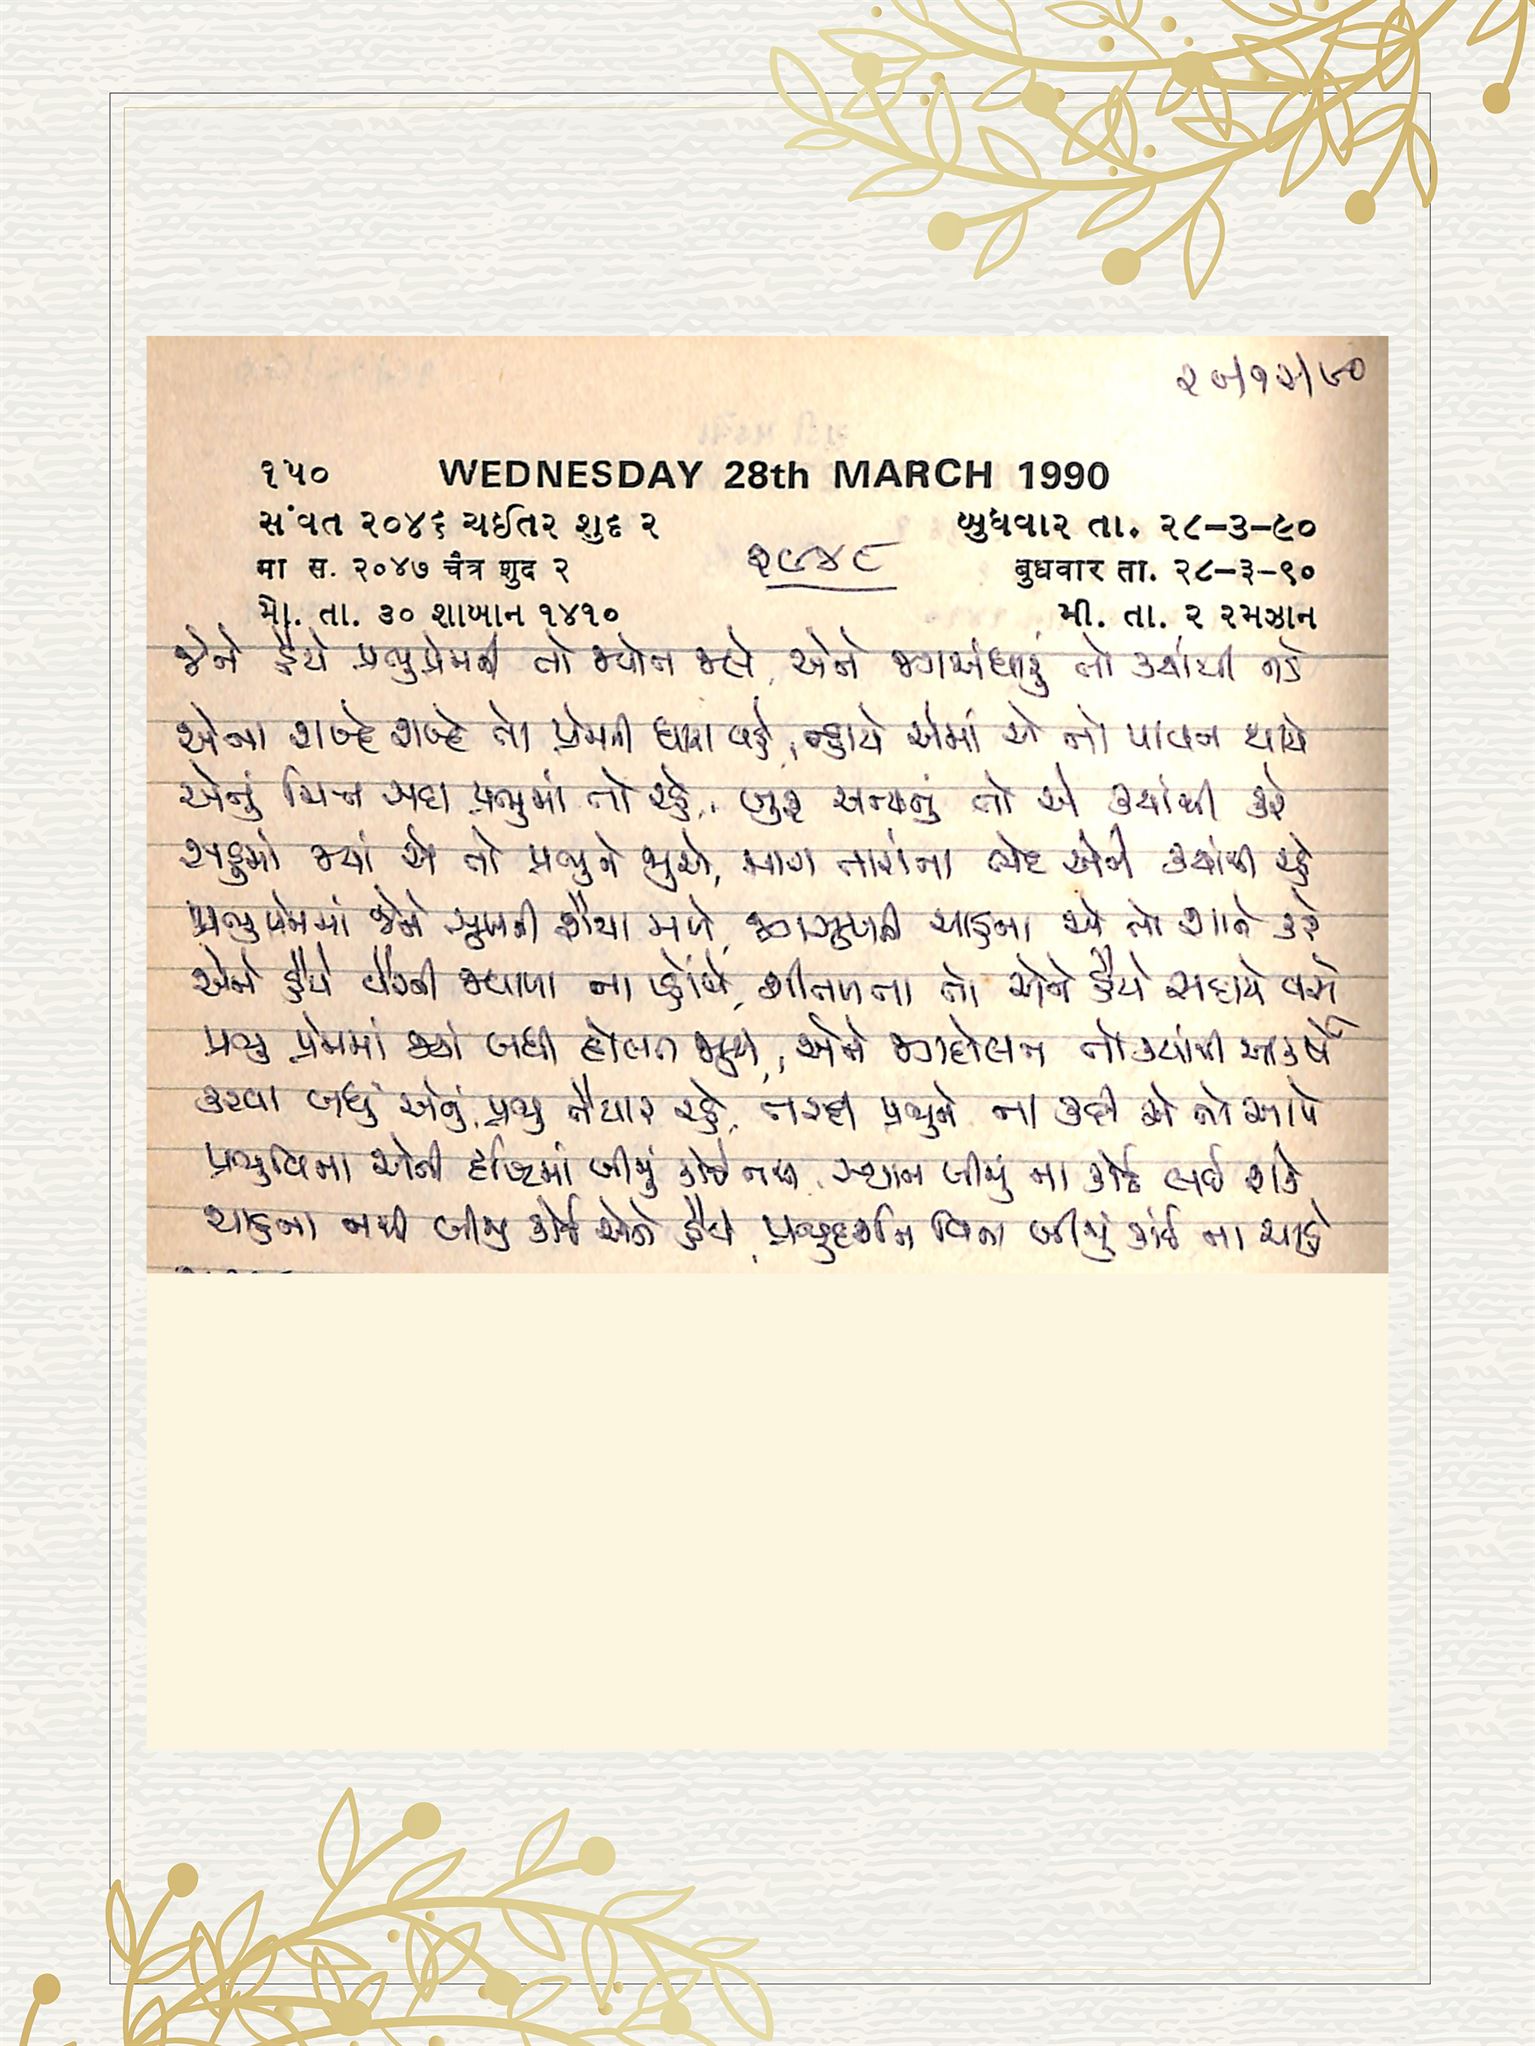 ૨૦/૧૨/૯૦
૧૫૦ WEDNESDAY 28th MARCH 1990
સંવત ૨૦૪૬ ચઈતર શુદ ૨ બુધવાર તા. ૨૮-૩-૯૦
मा स. २०४७ चैत्र शुद २ बुधवार ता. २८-३-९०
મો. તા. ૩૦ શાબાન ૧૪૧૦ મી. તા. ૨ રમઝાન
૨૯૪૯
જેને હૈયે પ્રભુપ્રેમની તો જ્યોત જલે, એને જગઅંધારું તો ક્યાંથી નડે
એના શબ્દે શબ્દે તો પ્રેમની ધારા વહે, ન્હાયે એમાં એ તો પાવન થાયે
એનું ચિત્ત સદા પ્રભુમાં તો રહે, બુરું અન્યનું તો એ ક્યાંથી કરે
સહુમાં જ્યાં એ તો પ્રભુને જુએ, મારા તારાના ભેદ એને ક્યાંથી રહે
પ્રભુપ્રેમમાં જેને સુખની શૈયા મળે, જગસુખની ચાહના એ તો શાને કરે
એને હૈયે વૈરની જ્વાળા ના પહોંચે, શીતળતા તો એને હૈયે સદાયે વસે
પ્રભુ પ્રેમમાં જ્યાં બધી દોલત ભૂલે, એને જગદોલત તો ક્યાંથી આકર્ષે
કરવા બધું એનું પ્રભુ તૈયાર રહે, તરછોડી પ્રભુને ના કદી એ તો આપે
પ્રભુવિના એની દૃષ્ટિમાં બીજું કોઈ નથી, સ્થાન બીજું ના કોઈ લઈ શકે
ચાહના નથી બીજી કોઈ એને હૈયે, પ્રભુદર્શન વિના બીજું કાંઈ ના ચાહે